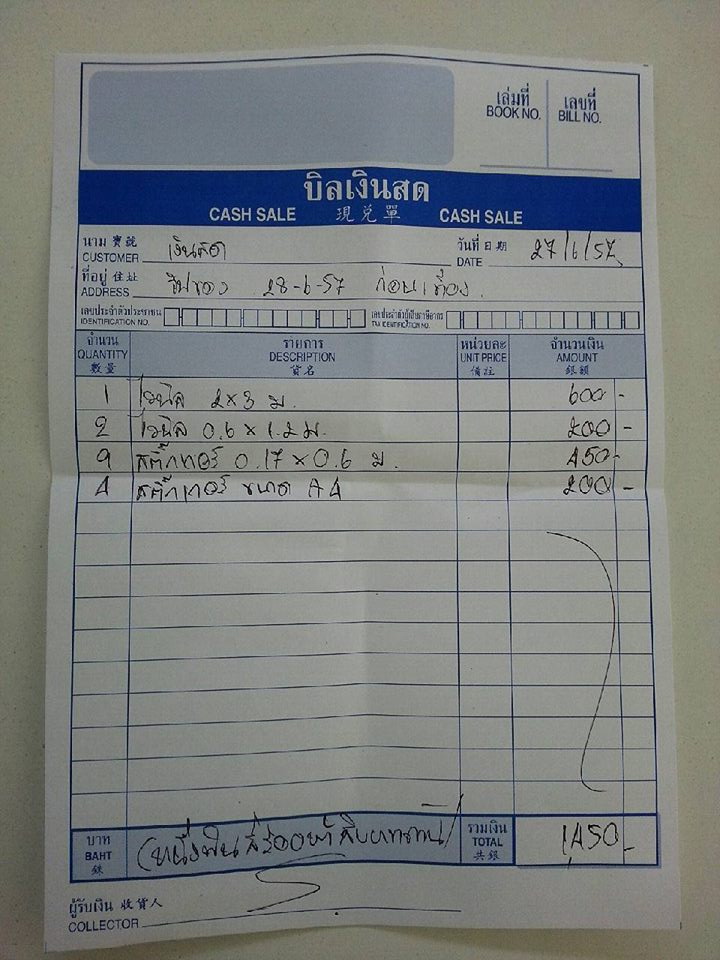 เล่มที่ เลขที่
BOOK NO. BILL NO.
บิลเงินสด
CASH SALE 現兌單 CASH SALE
นาม 寶號 วันที่ 日期
CUSTOMER เงินสด DATE 27/6/57
ที่อยู่ 住址
ADDRESS 28-6-57 ก่อนเที่ยง
เลขประจำตัวประชาชน เลขประจำตัวผู้เสียภาษีอากร
IDENTIFICATION NO. TAX IDENTIFICATION NO.
จำนวน รายการ หน่วยละ จำนวนเงิน
QUANTITY DESCRIPTION UNIT PRICE AMOUNT
數量 貨名 備註 銀額
1 ไวนิล 2×3 ม. 600 -
2 ไวนิล 0.6 × 1.2 ม. 200 -
9 สติ๊กเกอร์ 0.17 × 0.6 ม. 450 -
4 สติ๊กเกอร์ ขนาด A4 200 -
บาท (หนึ่งพันสี่ร้อยห้าสิบบาทถ้วน) รวมเงิน 1,450 -
BAHT TOTAL
銖 共銀
ผู้รับเงิน 收貨人
COLLECTOR